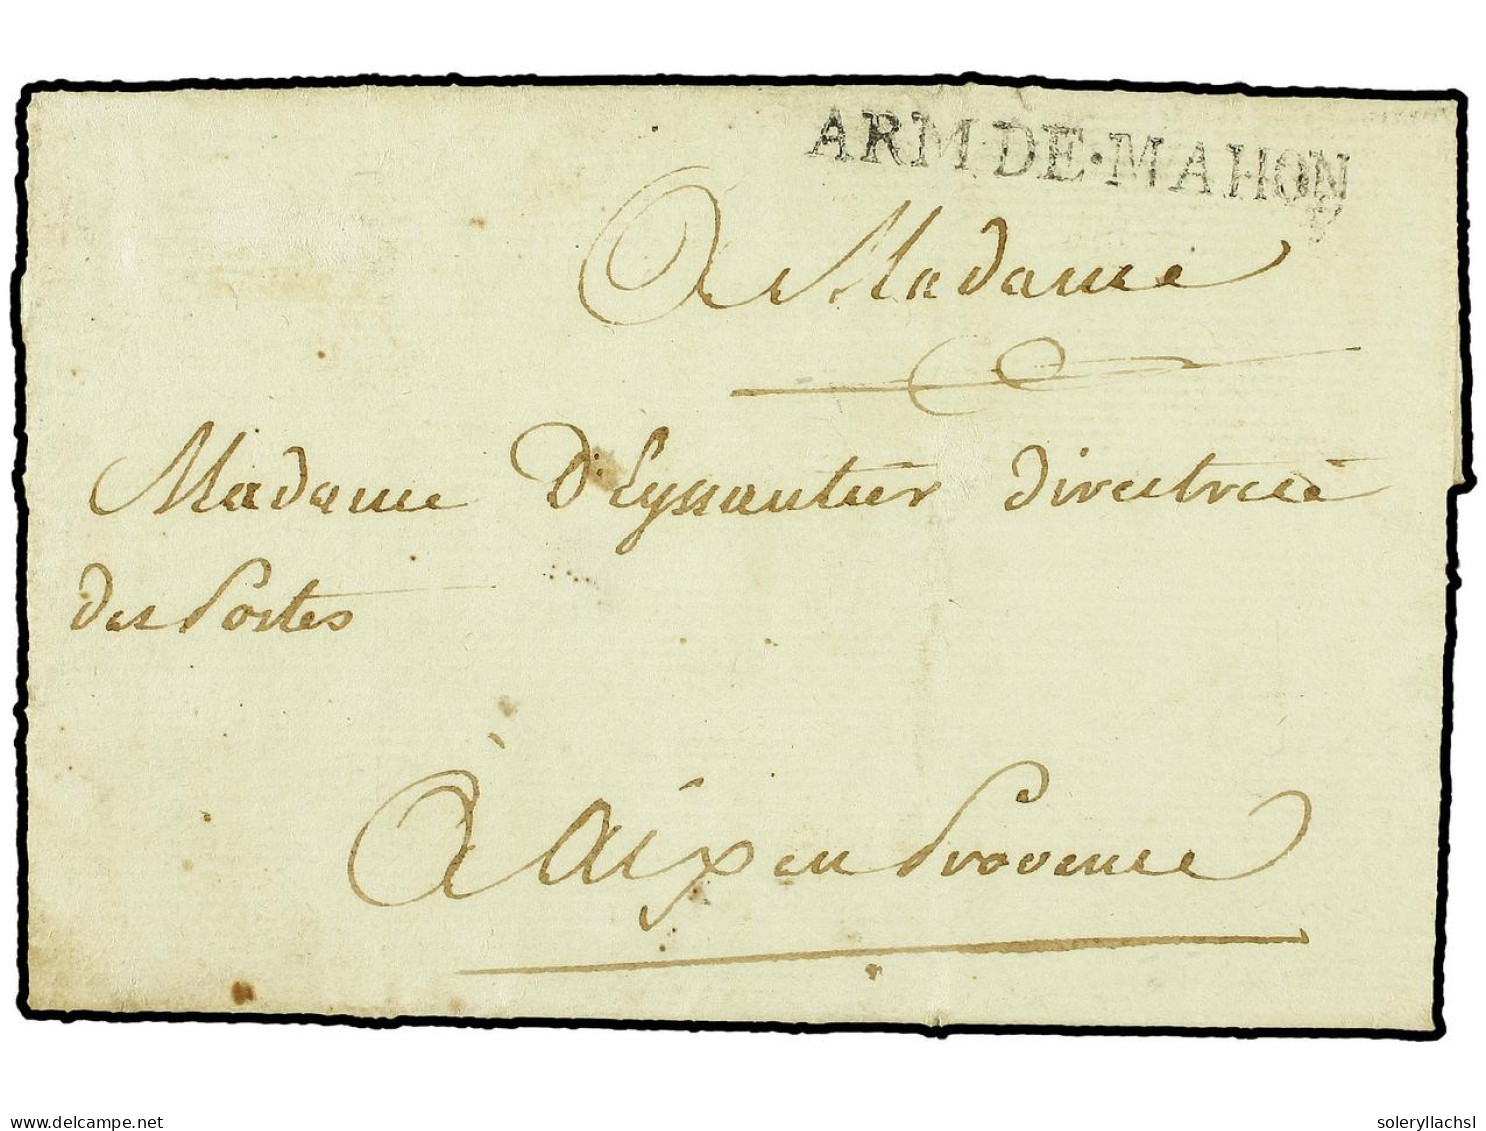 ARM·DE·MAHON
A Madame
Madame D'Eyssautier directrice
des Postes
à aix en Provence
delcampe.net
soleryllachsl